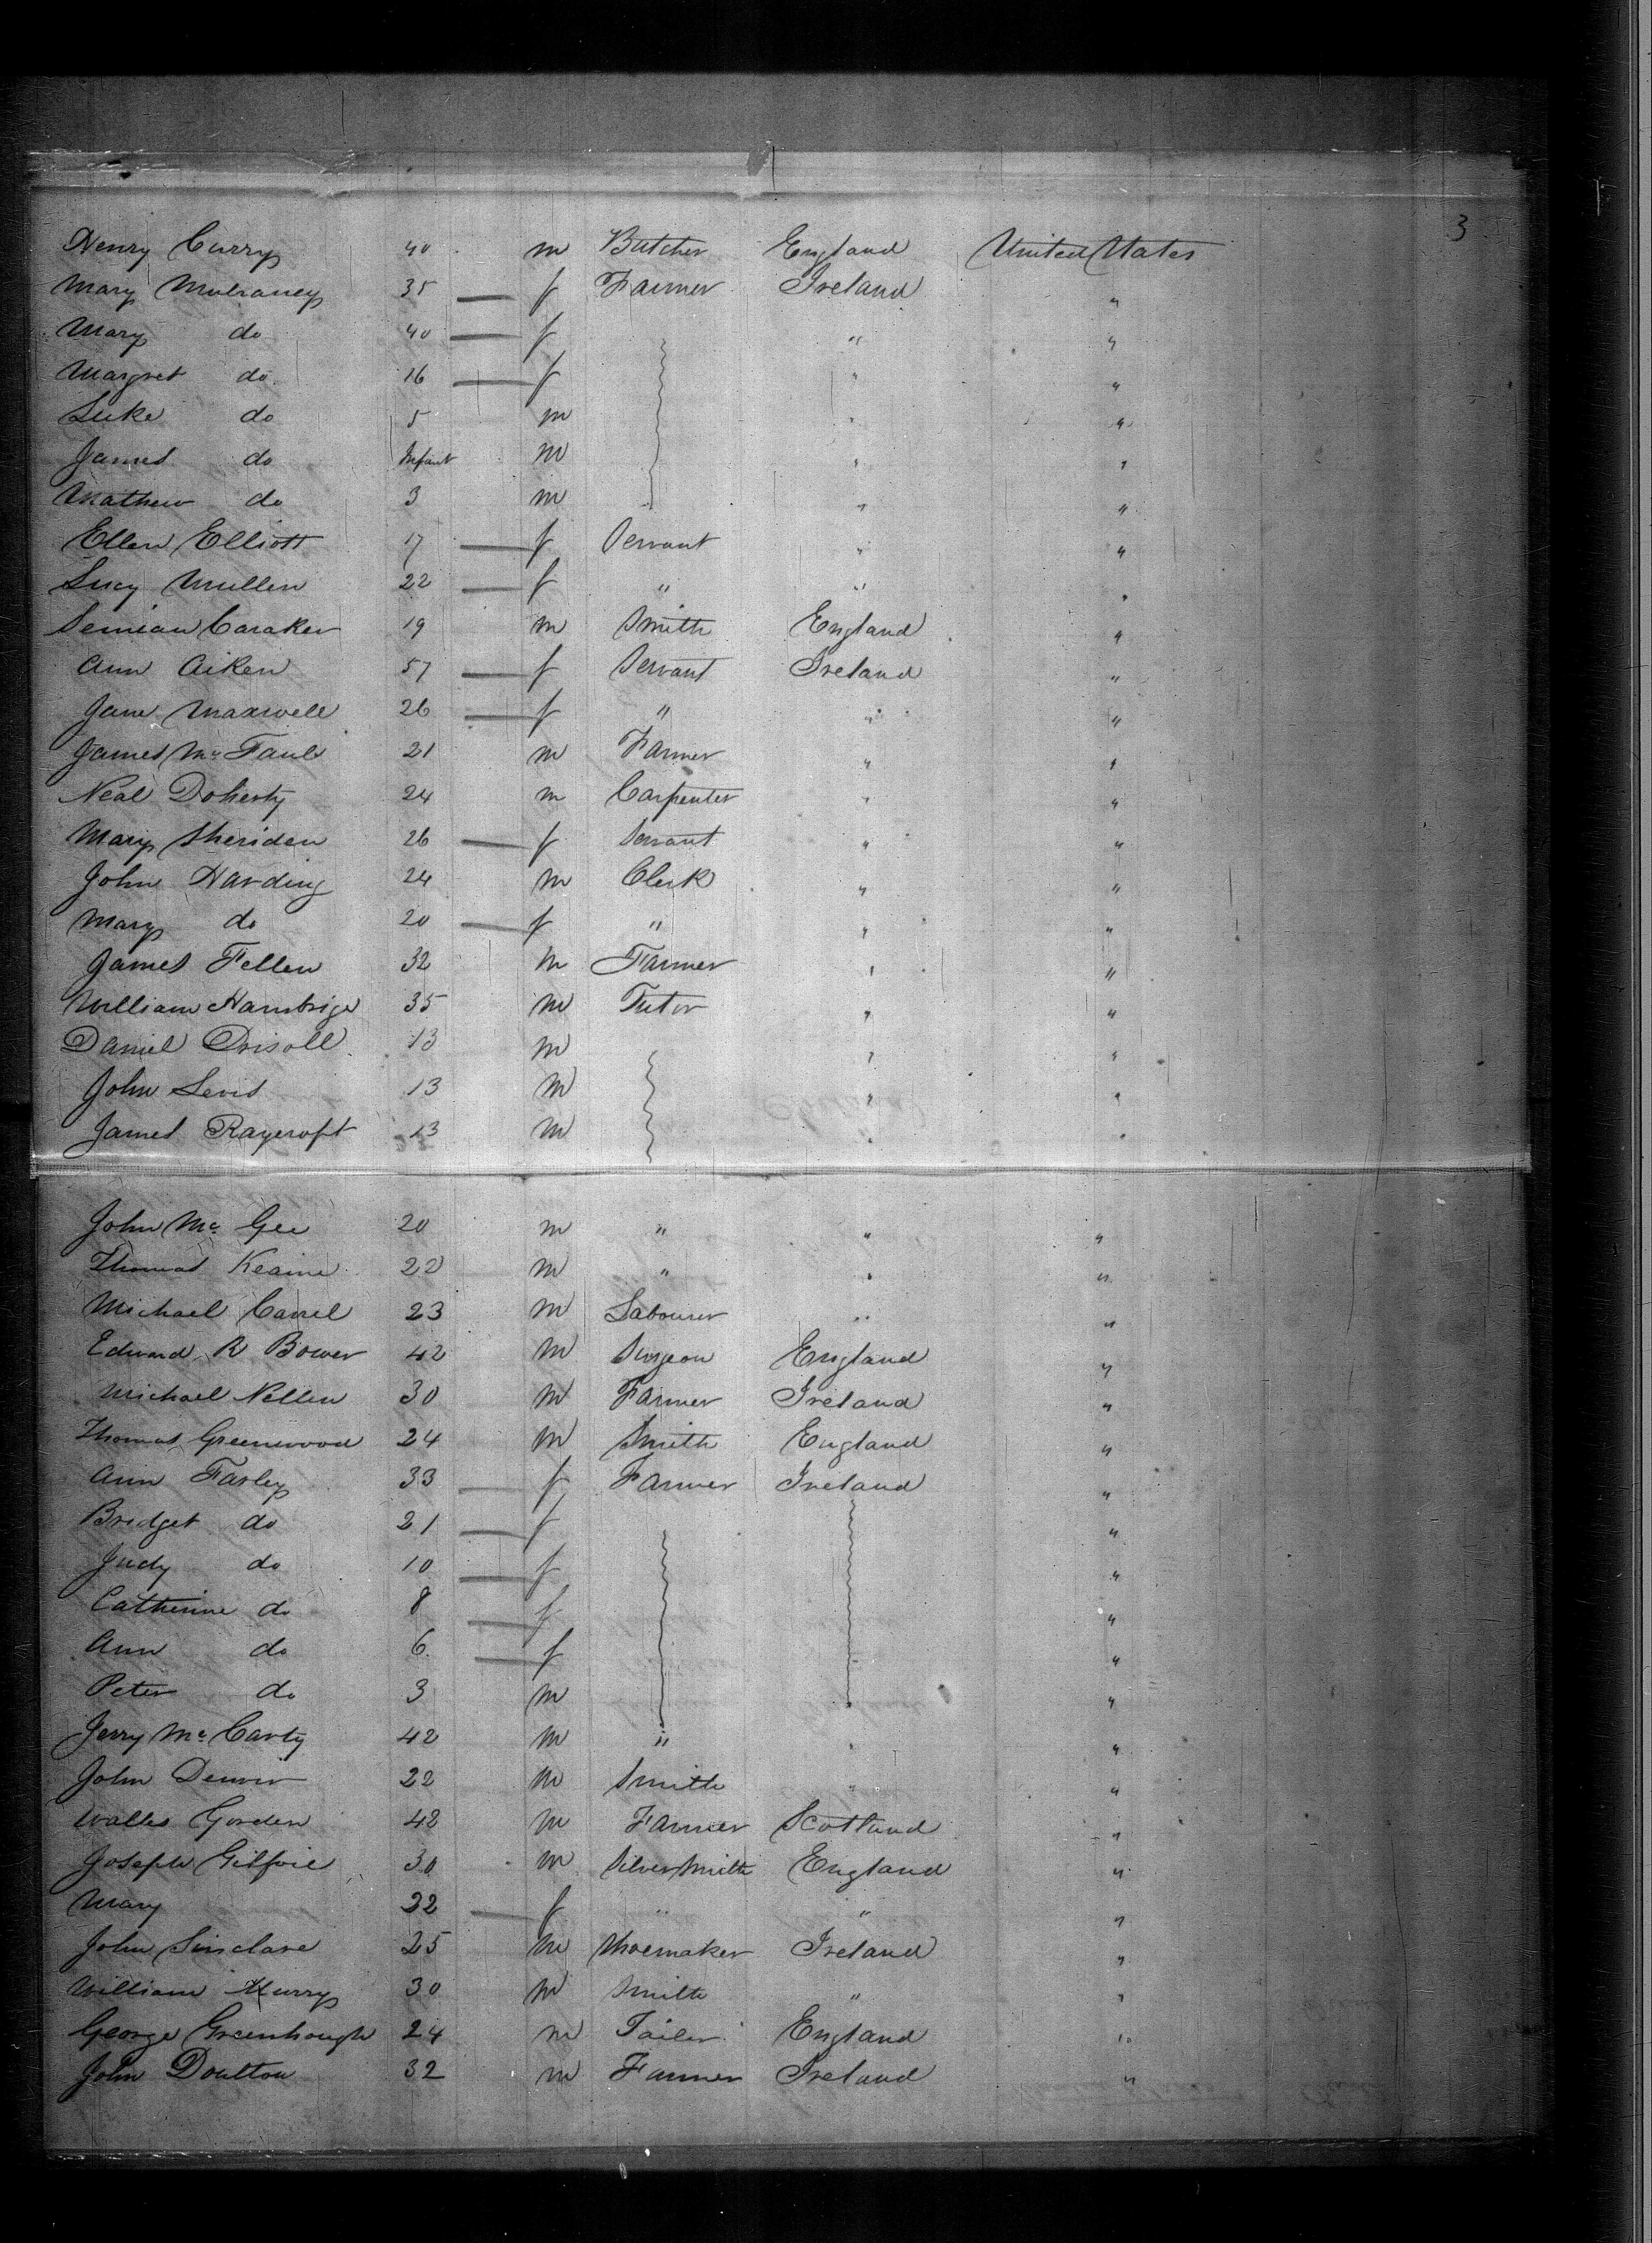 3
Henry Curry 40 m Butcher England United States
Mary Mulraney 35 f Farmer Ireland "
Mary do 40 f " "
Margret do 16 f " "
Luke do 5 m " "
James do Infant m " "
Mathew do 3 m " "
Ellen Elliott 17 f Servant " "
Lucy Mullen 22 f " " "
Caraker 19 m Smith England "
Ann Aiken 57 f Servant Ireland "
Jane Maxwell 26 f " " "
James Mc Faul 21 m Farmer " "
Neal Doherty 24 m Carpenter " "
Mary Sheriden 26 f Servant " "
John Harding 24 m Clerk " "
Mary do 20 f " " "
James Fellen 32 m Farmer " "
William 35 m Tutor " "
Daniel Drisoll 13 m " "
John Levis 13 m " "
James Raycroft 13 m " "
John Mc Gee 20 m " " "
Thomas Keaine 22 m " " "
Michael Carrel 23 m Labourer " "
Edward R Bower 42 m Surgeon England "
Michael Nellen 30 m Farmer Ireland "
Thomas Greenwood 24 m Smith England "
Ann Farley 33 f Farmer Ireland "
Bridget do 21 f "
Judy do 10 f "
Catherine do 8 f "
Ann do 6 f "
Peter do 3 m "
Jerry Mc Carty 42 m " " "
John Denver 22 m Smith " "
Gorden 42 m Farmer Scotland "
Joseph Gilfoie 30 m Silver Smith England "
Mary 22 f " " "
John Sinclare 25 m Shoemaker Ireland "
William Murry 30 m Smith " "
George Greenhough 24 m Tailer England "
John Doulton 32 m Farmer Ireland "